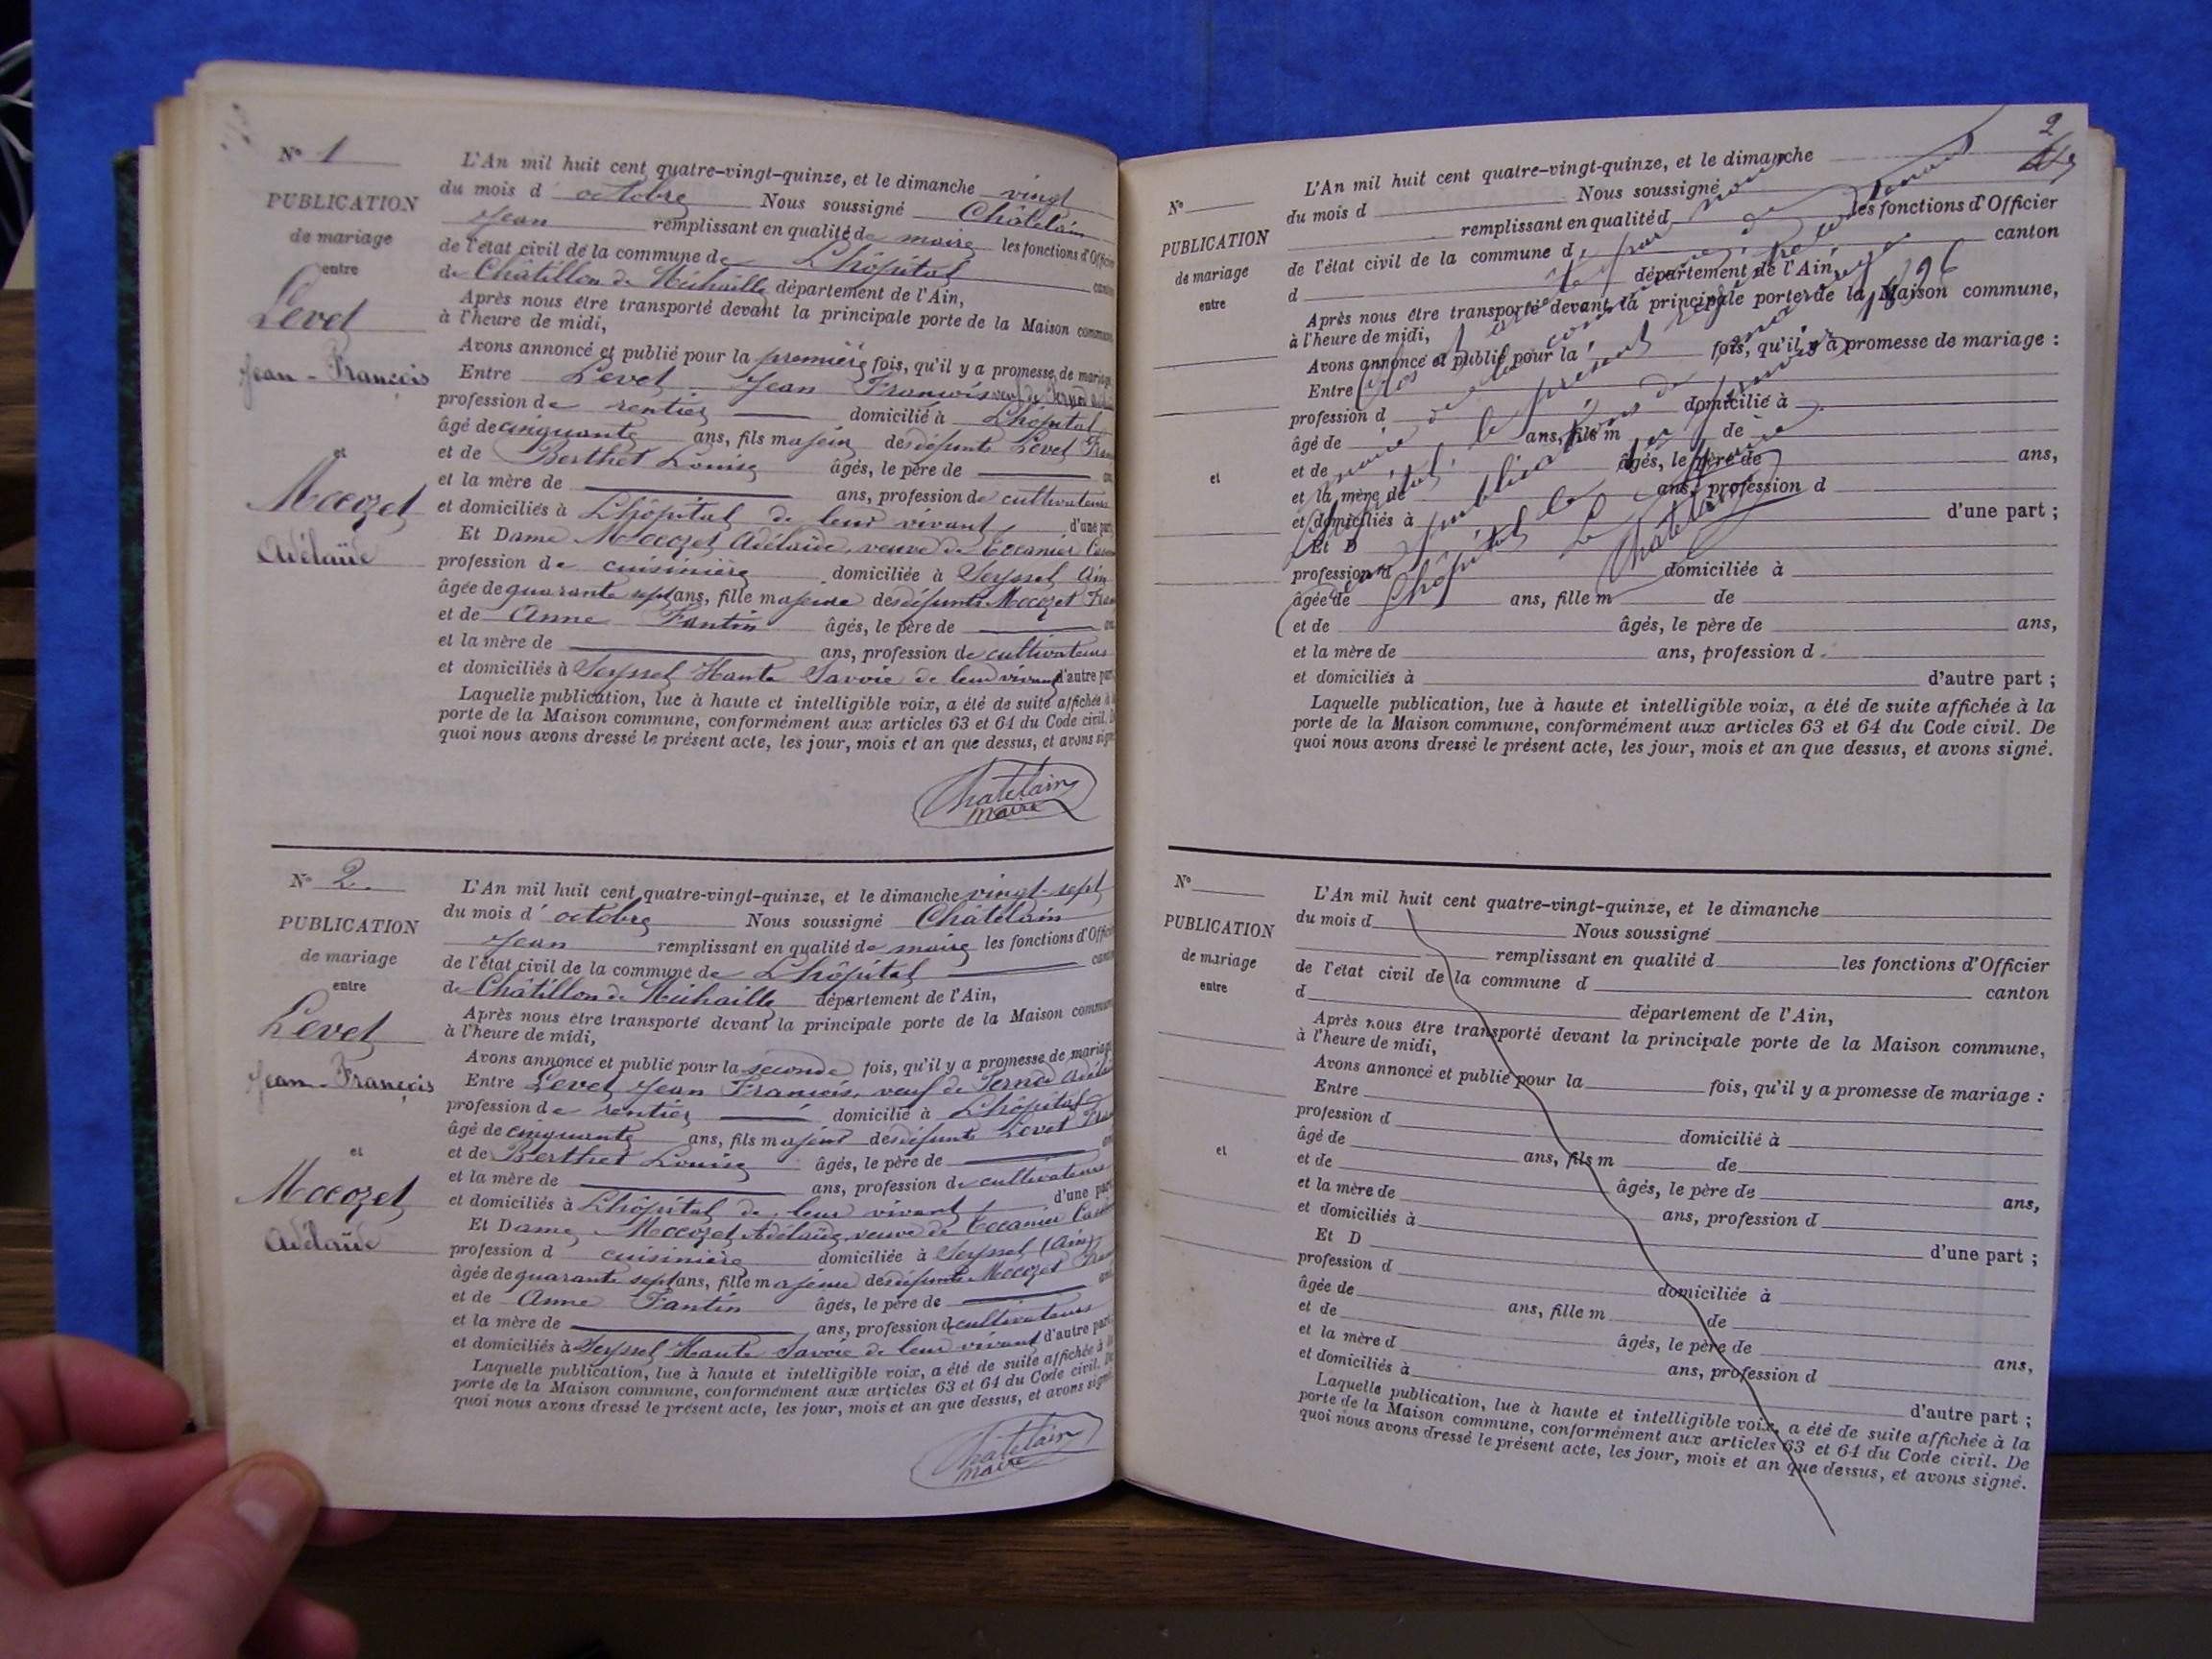 N° 1
PUBLICATION
de mariage
entre
Levet
Jean-François
et
Mocozet
Adélaïde
L'An mil huit cent quatre-vingt-quinze, et le dimanche vingt
du mois d' octobre Nous soussigné Châtelain
Jean remplissant en qualité de maire les fonctions d'Officier
de l'état civil de la commune de Lhôpital canton
de Châtillon de Michaille département de l'Ain,
Après nous être transporté devant la principale porte de la Maison commune,
à l'heure de midi,
Avons annoncé et publié pour la première fois, qu'il y a promesse de mariage
Entre Levet Jean François veuf de
profession de rentier domicilié à Lhôpital
âgé de cinquante ans, fils majeur des défunts Levet
et de Berthet Louise âgés, le père de
et la mère de ans, profession de cultivateurs
et domiciliés à Lhôpital de leur vivant d'une part
Et Dame Mocozet Adélaïde, veuve de Cocanier
profession de cuisinière domiciliée à Seyssel Ain
âgée de quarante sept ans, fille majeure des défunts Mocozet
et de Anne Fantin âgés, le père de
et la mère de ans, profession de cultivateurs
et domiciliés à Seyssel Haute Savoie de leur vivant d'autre part
Laquelle publication, lue à haute et intelligible voix, a été de suite affichée à la
porte de la Maison commune, conformément aux articles 63 et 64 du Code civil. De
quoi nous avons dressé le présent acte, les jour, mois et an que dessus, et avons signé
Chatelain
maire
N° 2.
PUBLICATION
de mariage
entre
Levet
Jean-François
et
Mocozet
Adélaïde
L'An mil huit cent quatre-vingt-quinze, et le dimanche vingt-sept
du mois d' octobre Nous soussigné Châtelain
Jean remplissant en qualité de maire les fonctions d'Officier
de l'état civil de la commune de Lhôpital canton
de Châtillon de Michaille département de l'Ain,
Après nous être transporté devant la principale porte de la Maison commune
à l'heure de midi,
Avons annoncé et publié pour la seconde fois, qu'il y a promesse de mariage
Entre Levet Jean François, veuf de
profession de rentier domicilié à Lhôpital
âgé de cinquante ans, fils majeur des défunts Levet
et de Berthet Louise âgés, le père de
et la mère de ans, profession de cultivateurs
et domiciliés à Lhôpital de leur vivant d'une part
Et Dame Mocozet Adélaïde, veuve de Cocanier
profession d cuisinière domiciliée à Seyssel (Ain)
âgée de quarante sept ans, fille majeure des défunts Mocozet
et de Anne Fantin âgés, le père de
et la mère de ans, profession d cultivateurs
et domiciliés à Seyssel Haute Savoie de leur vivant d'autre part
Laquelle publication, lue à haute et intelligible voix, a été de suite affichée à la
porte de la Maison commune, conformément aux articles 63 et 64 du Code civil. De
quoi nous avons dressé le présent acte, les jour, mois et an que dessus, et avons signé
Chatelain
maire
2
N°
PUBLICATION
de mariage
entre
et
L'An mil huit cent quatre-vingt-quinze, et le dimanche
du mois d Nous soussigné
remplissant en qualité d les fonctions d'Officier
de l'état civil de la commune d canton
d département de l'Ain,
Après nous être transporté devant la principale porte de la Maison commune,
à l'heure de midi,
Avons annoncé et publié pour la fois, qu'il y a promesse de mariage :
Entre
profession d domicilié à
âgé de ans, fils m de
et de âgés, le père de ans,
et la mère de ans, profession d
et domiciliés à d'une part ;
Et D
profession d domiciliée à
âgée de ans, fille m de
et de âgés, le père de ans,
et la mère de ans, profession d
et domiciliés à d'autre part ;
Laquelle publication, lue à haute et intelligible voix, a été de suite affichée à la
porte de la Maison commune, conformément aux articles 63 et 64 du Code civil. De
quoi nous avons dressé le présent acte, les jour, mois et an que dessus, et avons signé.
Clos et arrêté par nous
maire de la commune de
Lhôpital, le présent registre
publications de mariage
Lhôpital le 1er janvier 1896
Le Maire
Chatelain
N°
PUBLICATION
de mariage
entre
et
L'An mil huit cent quatre-vingt-quinze, et le dimanche
du mois d Nous soussigné
remplissant en qualité d les fonctions d'Officier
de l'état civil de la commune d canton
d département de l'Ain,
Après nous être transporté devant la principale porte de la Maison commune,
à l'heure de midi,
Avons annoncé et publié pour la fois, qu'il y a promesse de mariage :
Entre
profession d domicilié à
âgé de ans, fils m de
et de âgés, le père de ans,
et la mère de ans, profession d
et domiciliés à d'une part ;
Et D
profession d domiciliée à
âgée de ans, fille m de
et de âgés, le père de ans,
et la mère d ans, profession d
et domiciliés à d'autre part ;
Laquelle publication, lue à haute et intelligible voix, a été de suite affichée à la
porte de la Maison commune, conformément aux articles 63 et 64 du Code civil. De
quoi nous avons dressé le présent acte, les jour, mois et an que dessus, et avons signé.